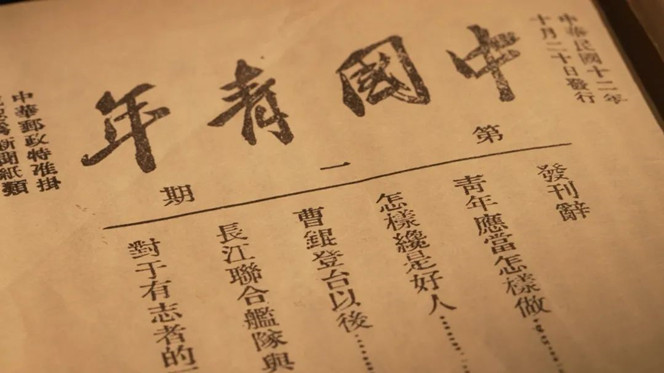 中華民國十二年
十月二十日發行
中國青年
第一期
發刊辭
青年應當怎樣做……
怎樣纔是好人……
曹錕登台以後……
長江聯合艦隊與
對于有志者的
中華郵政特准掛
聞紙類